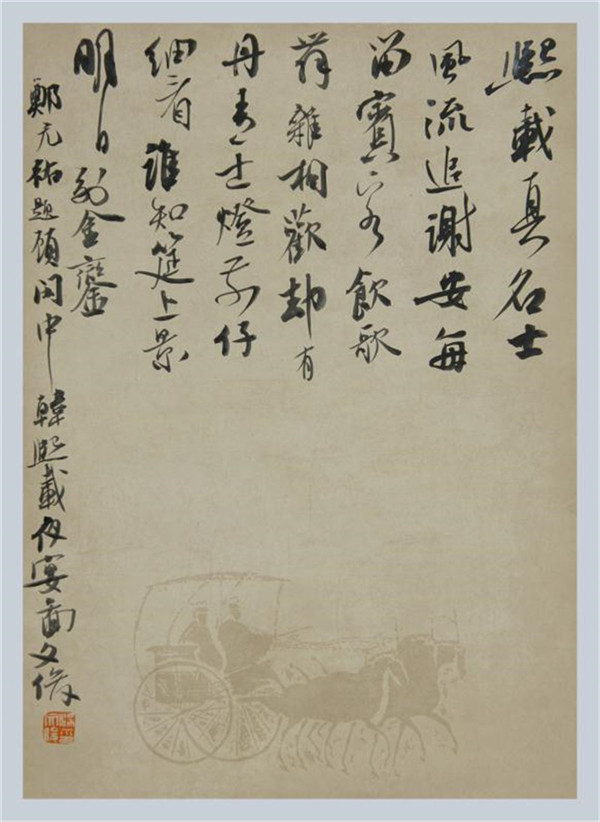 熙載真名士
風流追謝安每
留賓客飲歌
舞雜相歡却有
丹青士燈前仔
細看誰知筵上景
明日到金鑾
鄭元祐題顧閎中韓熙載夜宴圖文俊